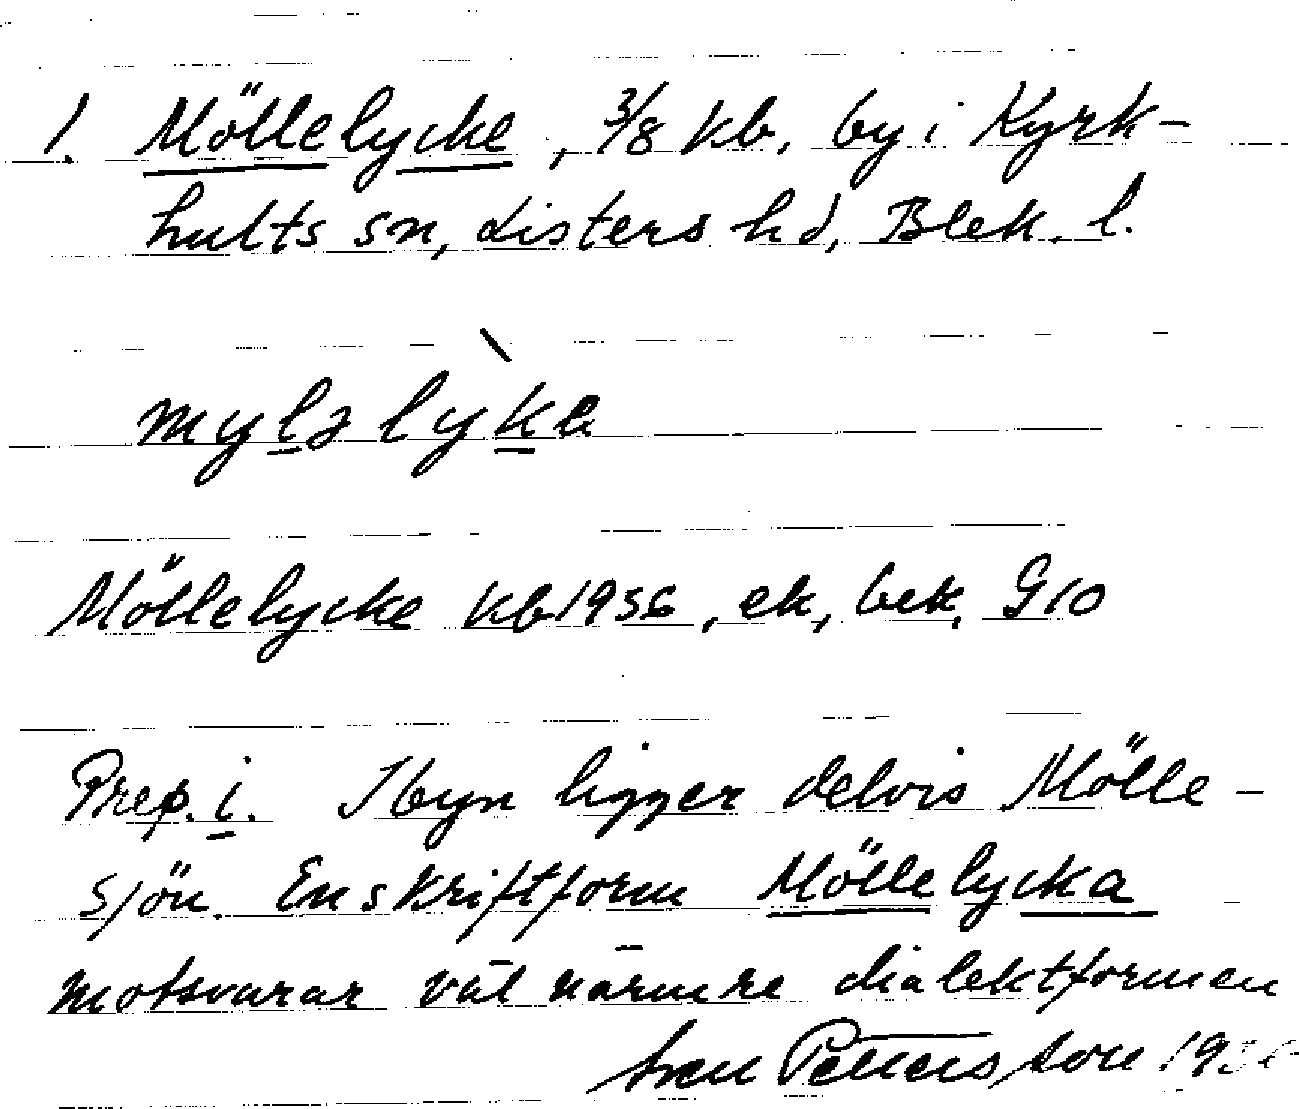 1. Möllelycke, 3/8 kb. by i Kyrk-
hults sn, Listers hd, Blek. l.
myləlyka
Möllelycke kb 1956, ek, bek. G10
Prep. i. I byn ligger delvis Mölle-
sjön. En skriftform Möllelycka
motsvarar väl närmre dialektformen
Sven Pettersson